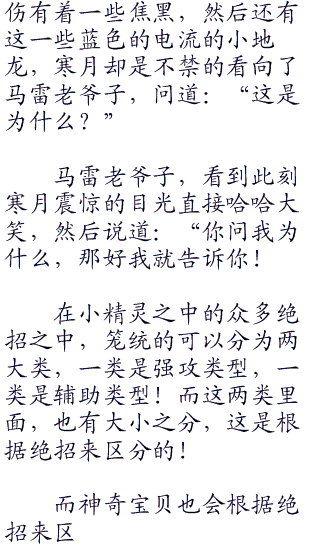 伤有着一些焦黑，然后还有
这一些蓝色的电流的小地
龙，寒月却是不禁的看向了
马雷老爷子，问道：“这是
为什么？”
马雷老爷子，看到此刻
寒月震惊的目光直接哈哈大
笑，然后说道：“你问我为
什么，那好我就告诉你！
在小精灵之中的众多绝
招之中，笼统的可以分为两
大类，一类是强攻类型，一
类是辅助类型！而这两类里
面，也有大小之分，这是根
据绝招来区分的！
而神奇宝贝也会根据绝
招来区